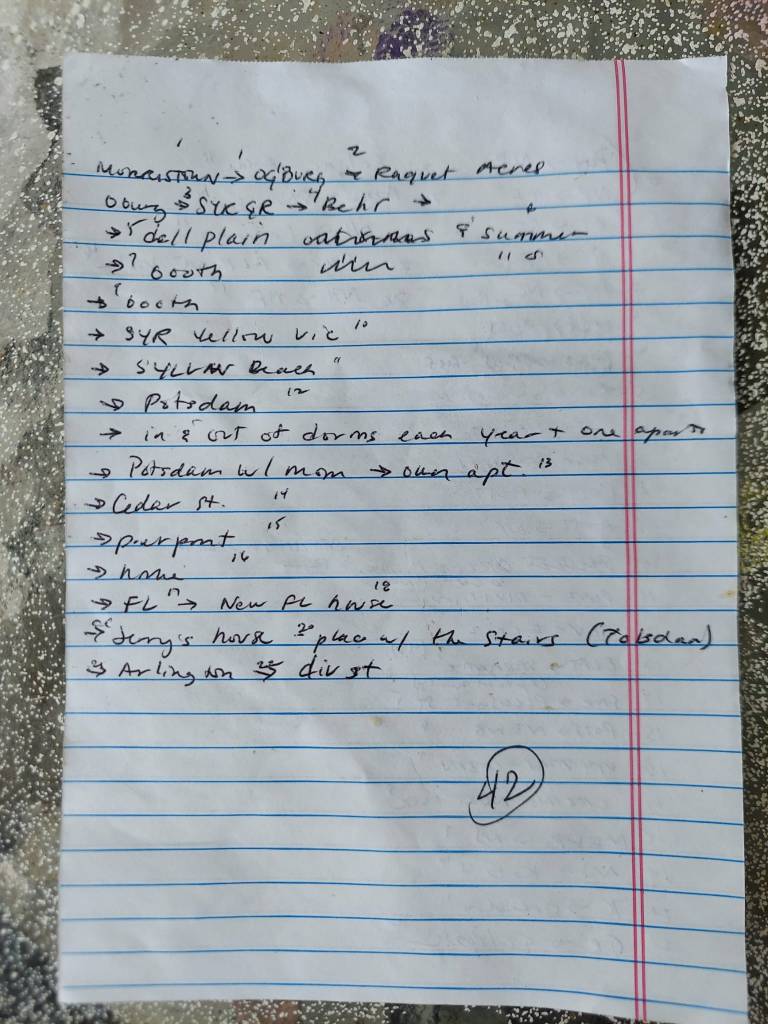 1 1 2
Morristown → OG'Burg → Raquet Acres
Oburg →3 SYR GR →4 Behr →
→5 dell plain & summer 6
→7 booth 11 8
→9 booth
→ SYR yellow vic 10
→ SYLVAN Beach 11
→ Potsdam 12
→ in & out of dorms each year + one apart
→ Potsdam w/ mom → own apt. 13
→ Cedar st. 14
→ pierpont 15
→ home 16
→ FL 17 → New FL house 18
→ Jerry's house 20 place w/ the stairs
21 Arlington 22 → div st
42